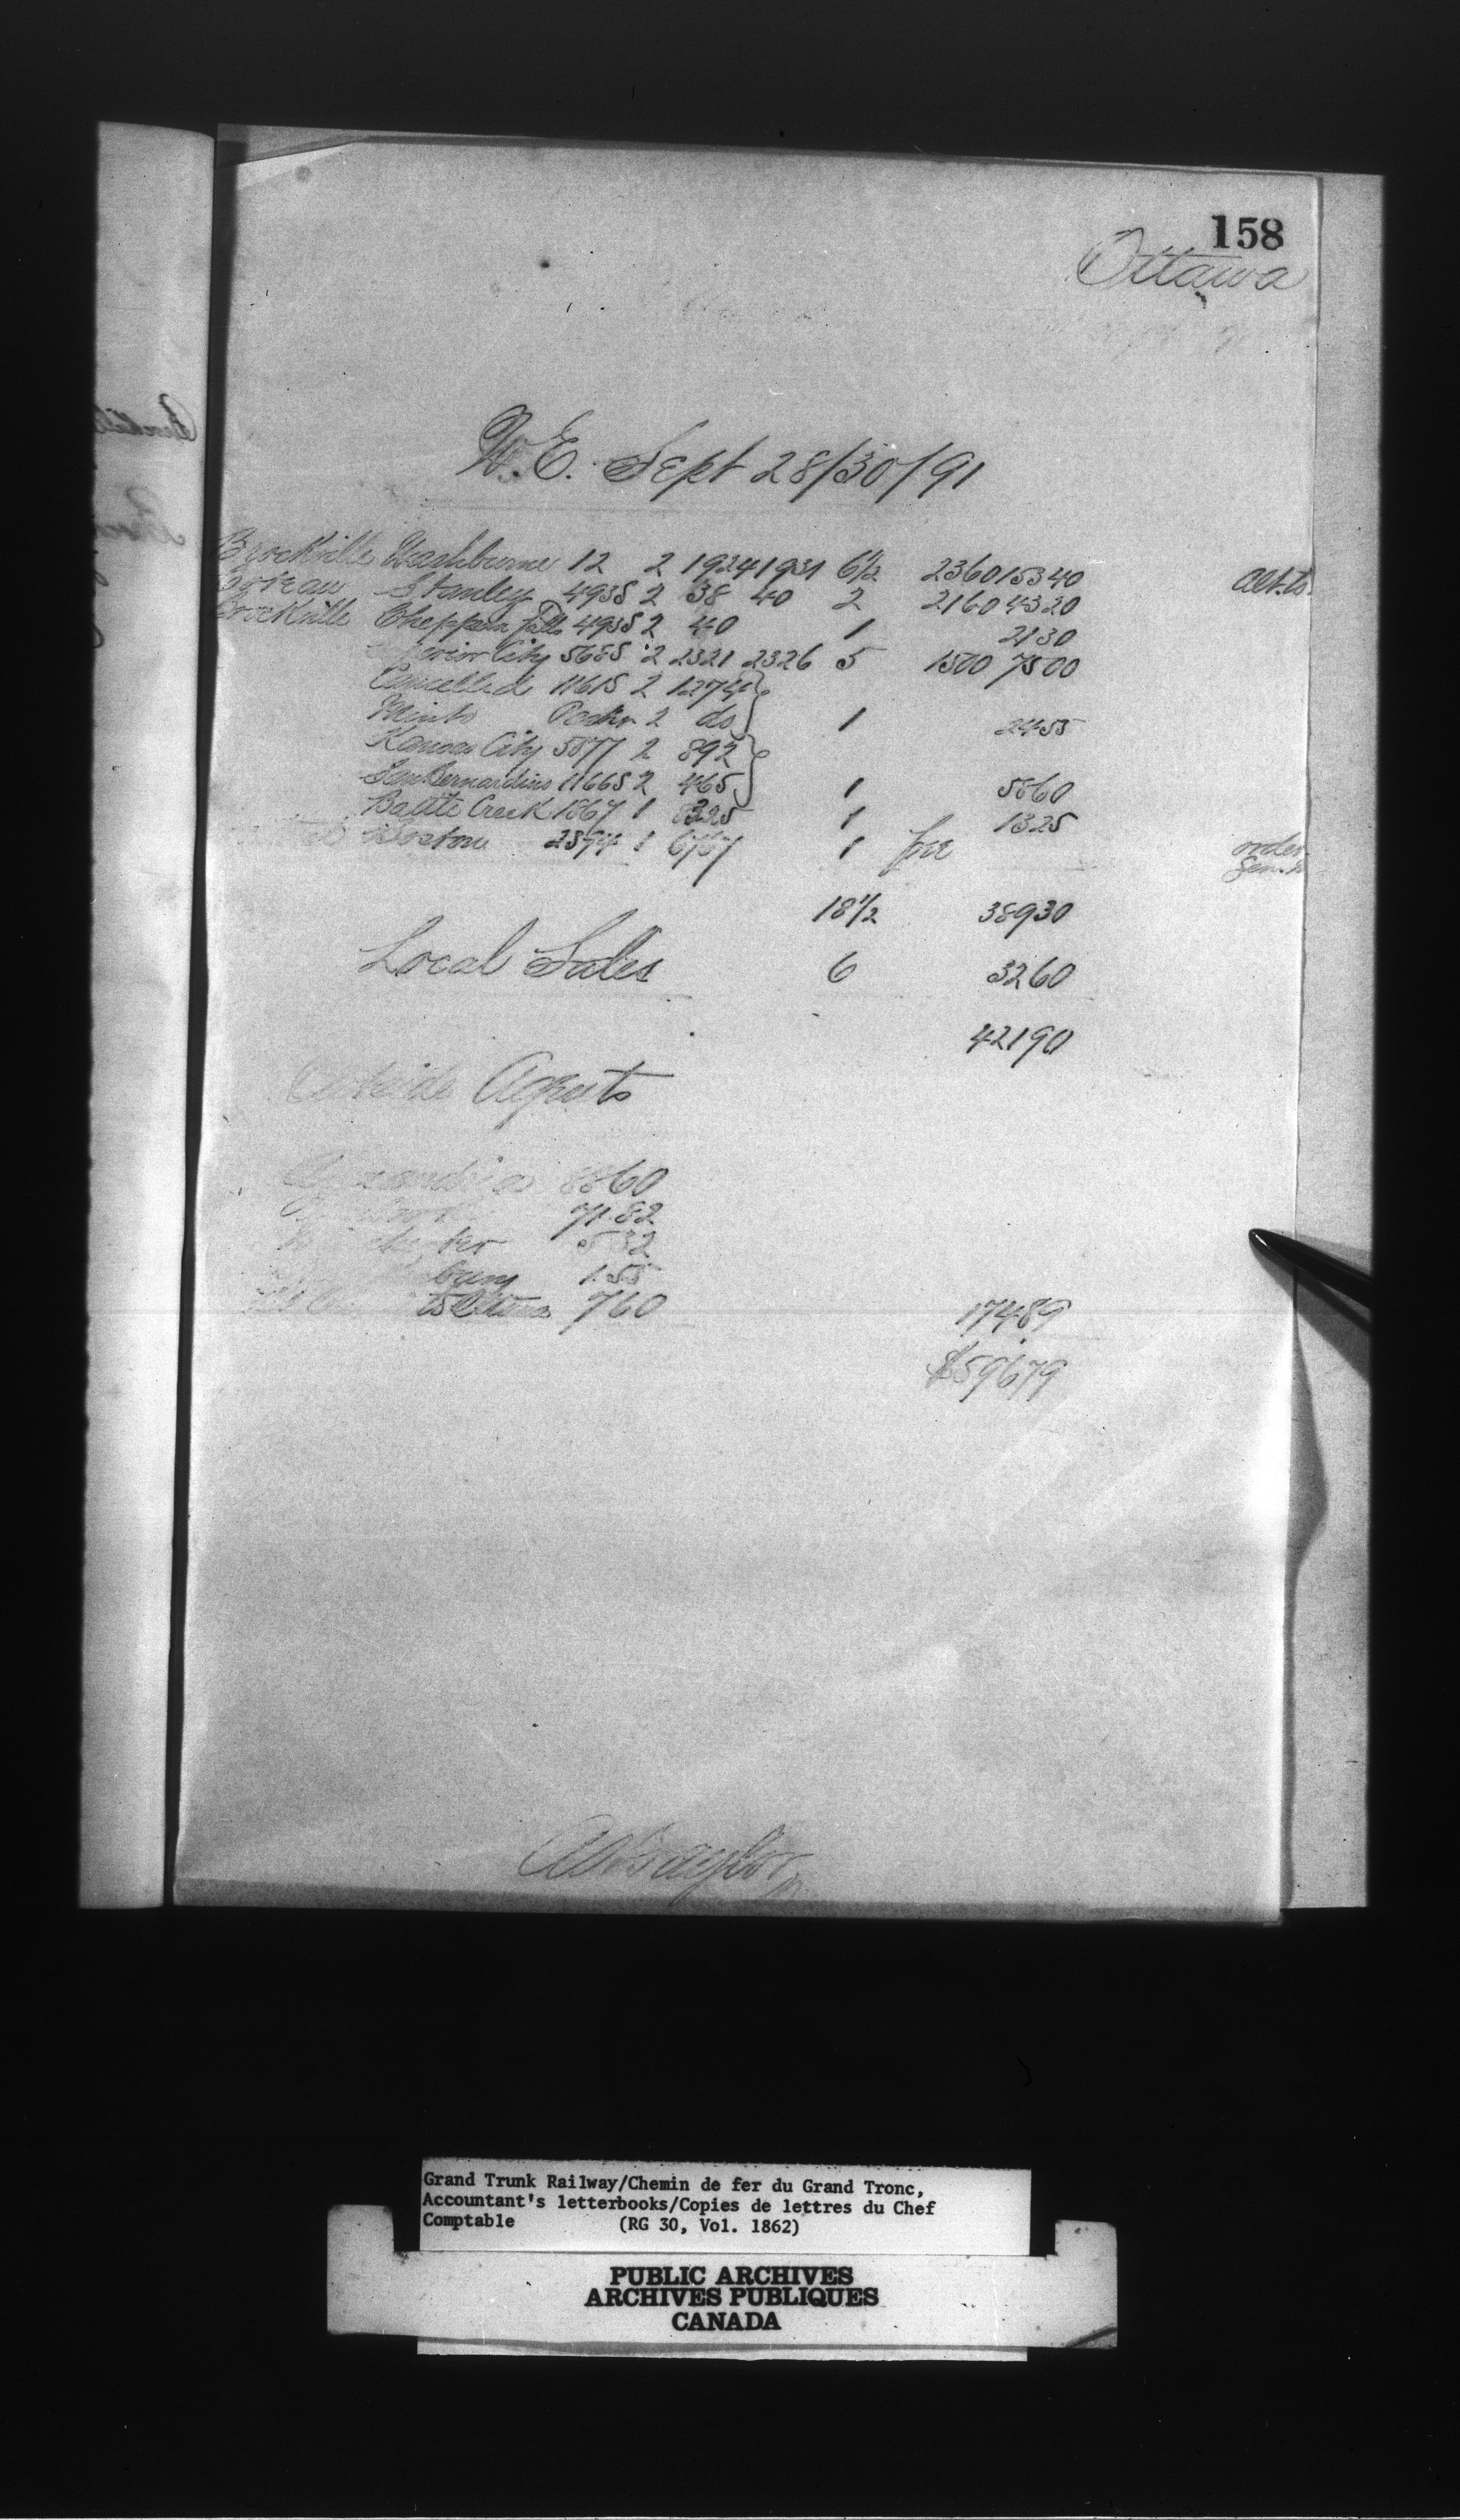 158
Ottawa
W.E. Sept 28/30/91
Brockville Washburne 12 2 1924 1931 6½ 2360 15340 
Coteau Stanley 493S 2 38 40 2 2160 4320
Brockville Cheppewa Falls 493S 2 40 1 2130
Superior City 568S 2 2321 2326 5 1500 7500
Cancelled 1161S 2 1274
Minto 2 do 1 2455
Kansas City 5877 2 892
San Bernardino 1166S 2 465 1 5860
Battle Creek 1867 1 8325 1 1325
Boston 2874 1 6767 1 free order
18½ 38930
Local Sales 6 3260
42190
Outside Agents
Alexandria 8860
7182
532
155
Ottawa 760 17489
$59679
Taylor
Grand Trunk Railway/Chemin de fer du Grand Tronc,
Accountant's letterbooks/Copies de lettres du Chef
Comptable (RG 30, Vol. 1862)
PUBLIC ARCHIVES
ARCHIVES PUBLIQUES
CANADA